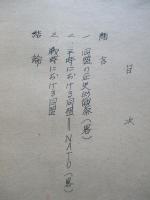 目次
緒言
一、同盟の正史的観察(略)
二、平時における同盟=NATO(略)
三、戦時における同盟
結論